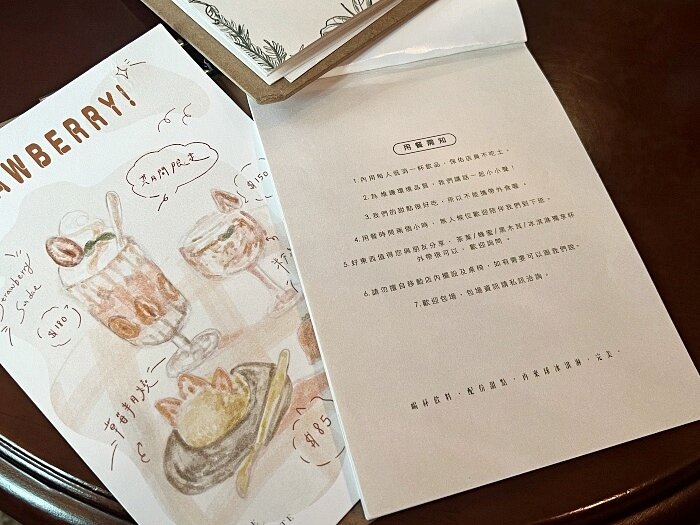 AWBERRY!
期間限定
$150
Strawberry
$180
草莓半月燒
$85
用餐需知
1.內用每人低消一杯飲品，保佑店員不吃土。
2.為維護環境品質，我們講話一起小小聲！
3.我們的甜點很好吃，所以不能攜帶外食喔。
4.用餐時間兩個小時，無人候位歡迎陪伴我們到下班。
5.好東西值得您與朋友分享，茶葉/蜂蜜/黑木耳/冰淇淋獨享杯
外帶很可以，歡迎詢問。
6.請勿擅自移動店內擺設及桌椅，如有需要可以跟我們說。
7.歡迎包場，包場資訊請私訊洽詢。
喝杯飲料，配份甜點，再來球冰淇淋，完美。